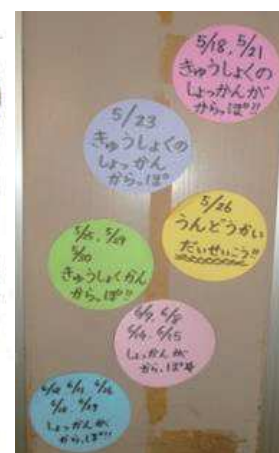 5/18、5/21
きゅうしょくの
しょっかんが
からっぽ!!
5/23
きゅうしょくの
しょっかん
からっぽ
5/26
うんどうかい
だいせいこう!!
5/25、5/29
5/30
きゅうしょくかん
からっぽ!!
6/7、6/8
6/14、6/15
しょっかんが
からっぽ
しょっかんが
からっぽ!!